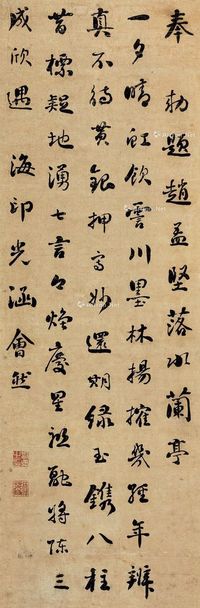 奉勅題趙孟堅落水蘭亭
一夕晴虹飲雲川墨林揚搉幾經年辨
真不待黃銀押寫妙還期綠玉鐫八柱
昔標擬地湧七言今煥慶星聯將陳三
成欣遇海印光涵會